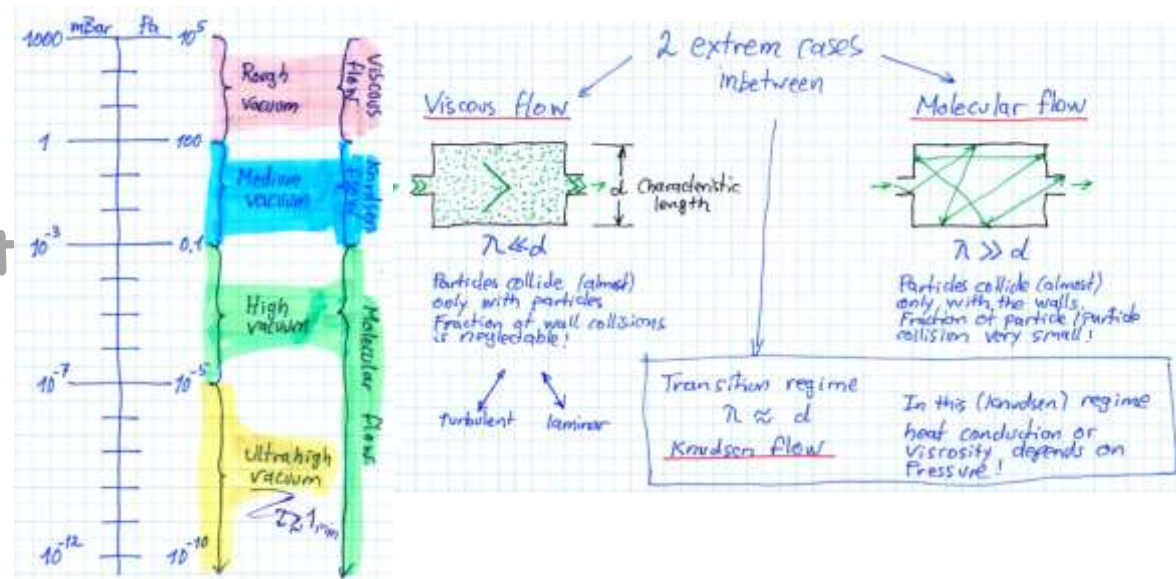 mBar Pa
1000 10⁵
Rough
vacuum
Viscous
flow
1 100
Medium
vacuum
Knudsen
flow
10⁻³ 0,1
High
vacuum
Molecular flow
10⁻⁷ 10⁻⁵
Ultrahigh
vacuum
10⁻¹² 10⁻¹⁰
2 extrem cases
inbetween
Viscous flow
d Characteristic
length
λ ≪ d
Particles collide (almost)
only with particles
Fraction of wall collisions
is neglectable!
turbulent laminar
Molecular flow
λ ≫ d
Particles collide (almost)
only with the walls.
Fraction of particle/particle
collision very small!
Transition regime
λ ≈ d
Knudsen flow
In this (Knudsen) regime
heat conduction or
Viscosity depends on
Pressure!